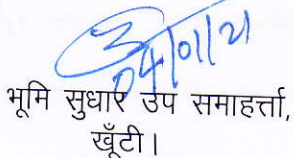 04/01/21
भूमि सुधार उप समाहर्त्ता,
खूँटी।